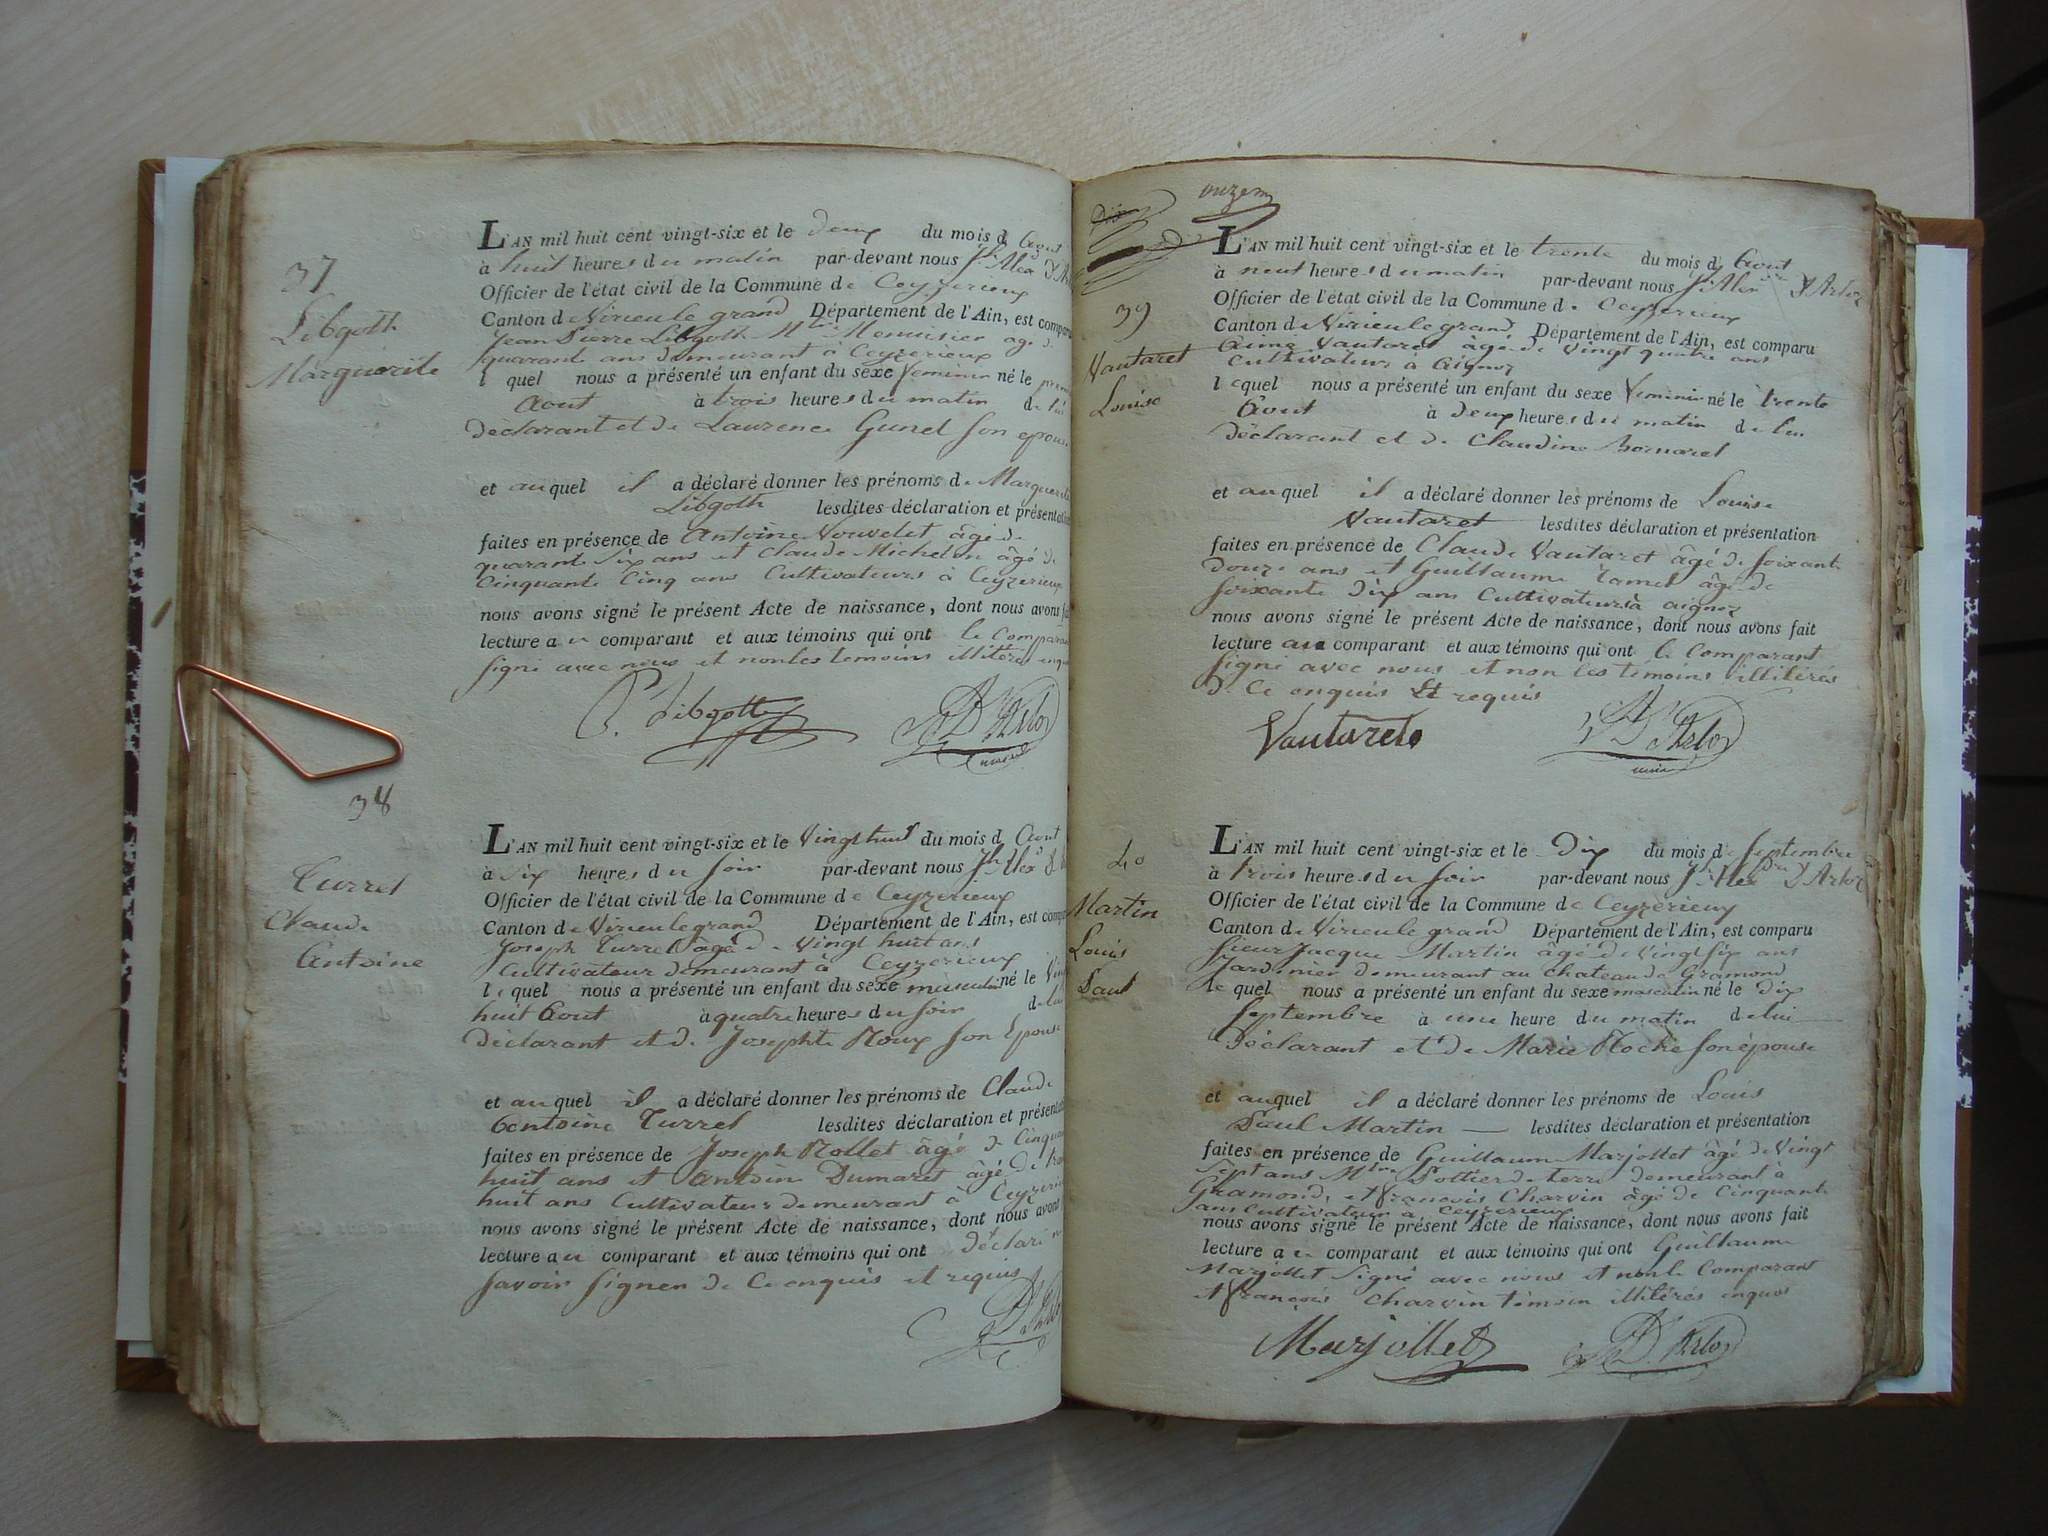 37
Libgoth
Marguerite
L'AN mil huit cent vingt-six et le deux du mois d Aout
à huit heures du matin par-devant nous Jh Alex
Officier de l'état civil de la Commune de Ceyzerieux
Canton de Virieu le grand Département de l'Ain, est compar
Jean Pierre Libgoth Mtre Menuisier age de
quarante ans demeurant à Ceyzerieux
l quel nous a présenté un enfant du sexe feminin né le
Aout à trois heures du matin de lui
declarant et de Laurence Gunet son epouse
et auquel il a déclaré donner les prénoms de Marguerite
Libgoth lesdites déclaration et présentation
faites en présence de Antoine Nouvelet âgé de
quarante six ans et Claude Michelin âgé de
Cinquante Cinq ans Cultivateurs à Ceyzerieux
nous avons signé le présent Acte de naissance, dont nous avons
lecture au comparant et aux témoins qui ont le Comparant
signé avec nous et non les temoins illiterés
P. Libgoth D'Arloz
38
Turrel
Claude
Antoine
L'AN mil huit cent vingt-six et le Vingt huit du mois d Aout
à six heures du soir par-devant nous Jh Alex
Officier de l'état civil de la Commune de Ceyzerieux
Canton de Virieu le grand Département de l'Ain, est compa
Joseph Turrel âgé de vingt huit ans
Cultivateur demeurant à Ceyzerieux
lequel nous a présenté un enfant du sexe masculin né le Vingt
huit Aout à quatre heures du soir de lui
déclarant et de Josephte Roux son Epouse
et auquel il a déclaré donner les prénoms de Claude
Antoine Turrel lesdites déclaration et présentat
faites en présence de Joseph Rollet âgé de Cinquante
huit ans et Antoine Dumaret âgé de
huit ans Cultivateurs demeurant à Ceyzerieux
nous avons signé le présent Acte de naissance, dont nous avons
lecture au comparant et aux témoins qui ont déclaré
savoir signer de Ce enquis et requis
D'Arloz
onzem
39
Vautaret
Louise
L'AN mil huit cent vingt-six et le trente du mois d Aout
à neuf heures du matin par-devant nous Jh Alex D'Arloz
Officier de l'état civil de la Commune de Ceyzerieux
Canton de Virieu le grand Département de l'Ain, est comparu
Aimé Vautaret âgé de Vingt quatre ans
Cultivateur à Aignoz
lequel nous a présenté un enfant du sexe feminin né le trente
Aout à deux heures du matin de lui
déclarant et de Claudine Bornaret
et auquel il a déclaré donner les prénoms de Louise
Vautaret lesdites déclaration et présentation
faites en présence de Claude Vautaret âgé de soixante
douze ans et Guillaume Tamet âgé de
soixante dix ans Cultivateurs à aignoz
nous avons signé le présent Acte de naissance, dont nous avons fait
lecture au comparant et aux témoins qui ont le Comparant
signé avec nous et non les témoins illitérés
de Ce enquis et requis
Vautaret D'Arloz
40
Martin
Louis
Paul
L'AN mil huit cent vingt-six et le Dix du mois de septembre
à trois heures du soir par-devant nous Jh Alex D'Arloz
Officier de l'état civil de la Commune de Ceyzerieux
Canton de Virieu le grand Département de l'Ain, est comparu
sieur Jacque Martin âgé de Vingt six ans
Jardinier demeurant au chateau de Gramond
le quel nous a présenté un enfant du sexe masculin né le dix
septembre à une heure du matin de lui
Déclarant et de Marie Roche son épouse
et auquel il a déclaré donner les prénoms de Louis
Paul Martin lesdites déclaration et présentation
faites en présence de Guillaume Marjollet âgé de Vingt
sept ans Mtre Pottier de terre demeurant à
Gramond, et françois Charvin âgé de Cinquante
ans Cultivateur à Ceyzerieux
nous avons signé le présent Acte de naissance, dont nous avons fait
lecture au comparant et aux témoins qui ont Guillaume
Marjollet signé avec nous et non le Comparant
et françois Charvin témoin illitérés enquis
Marjollet D'Arloz